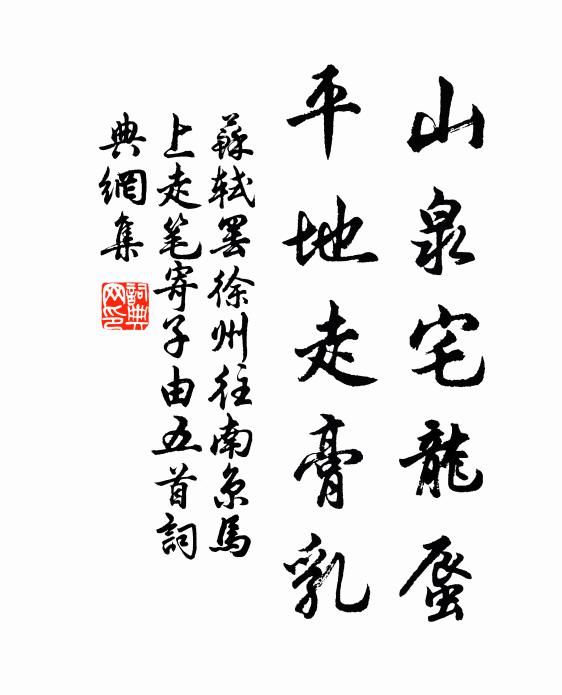 山泉宅龍蜃
平地走膏乳
蘇軾罷徐州往南京馬
上走笔寄子由五首詞
典網集
詞典
网印